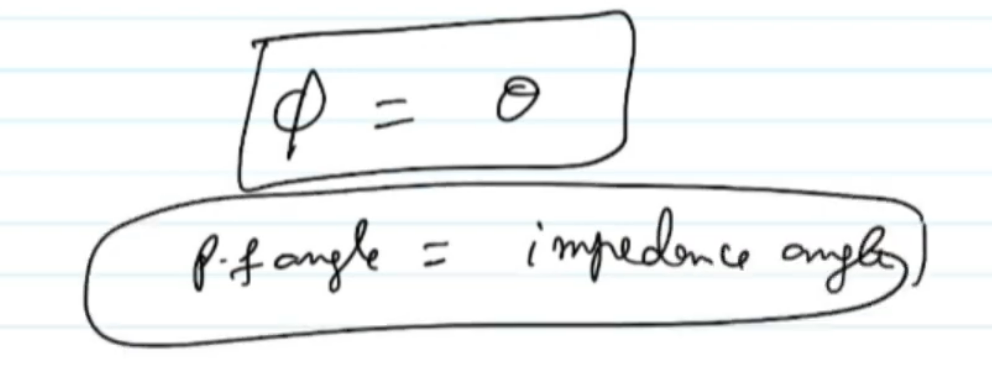 ϕ = θ
p.f angle = impedence angle